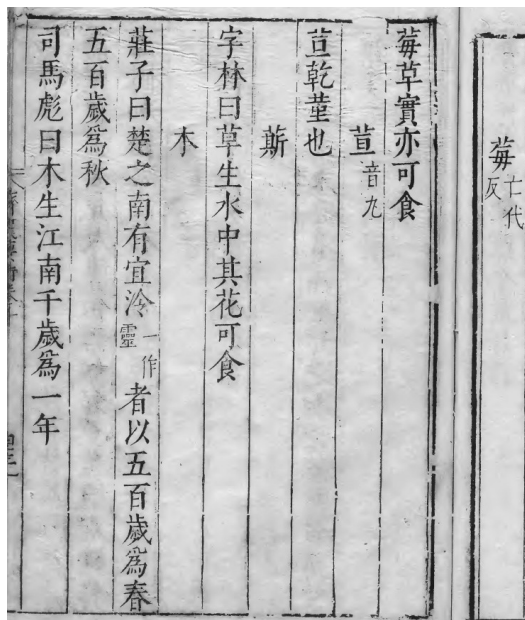 莓亡代反
莓草實亦可食
荁音九
荳乾堇也
䔮
字林曰草生水中其花可食
木
莊子曰楚之南有宜泠一作靈者以五百歲爲春
五百歲爲秋
司馬彪曰木生江南千歲爲一年